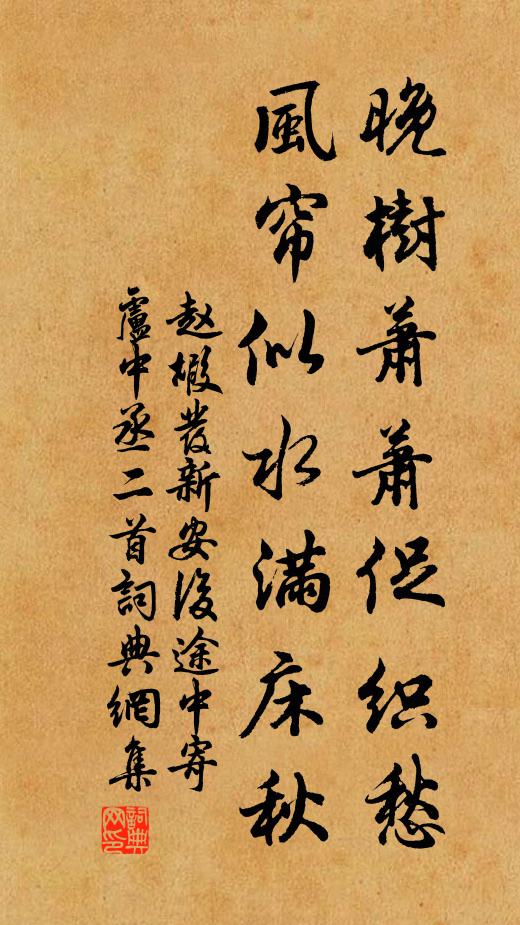 晚樹蕭蕭促织愁
風帘似水满床秋
赵嘏發新安後途中寄
盧中丞二首詞典網集
詞典网印